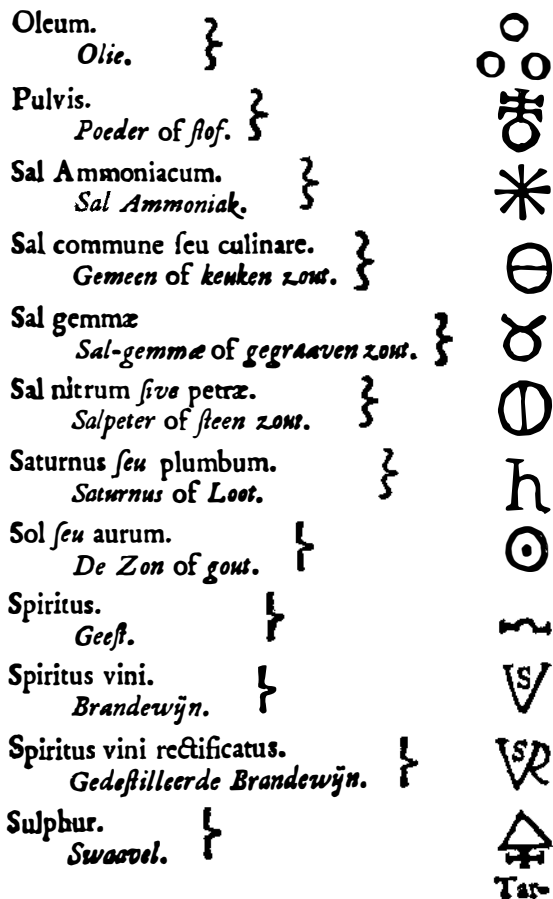 Oleum.
Olie.
Pulvis.
Poeder of ſtof.
Sal Ammoniacum.
Sal Ammoniak.
Sal commune ſeu culinare.
Gemeen of keuken zout.
Sal gemmæ
Sal-gemmæ of gegraaven zout.
Sal nitrum ſive petræ.
Salpeter of ſteen zout.
Saturnus ſeu plumbum.
Saturnus of Loot.
Sol ſeu aurum.
De Zon of gout.
Spiritus.
Geeſt.
Spiritus vini.
Brandewijn.
Spiritus vini rectificatus.
Gedeſtilleerde Brandewijn.
Sulphur.
Swaavel.
Tar-